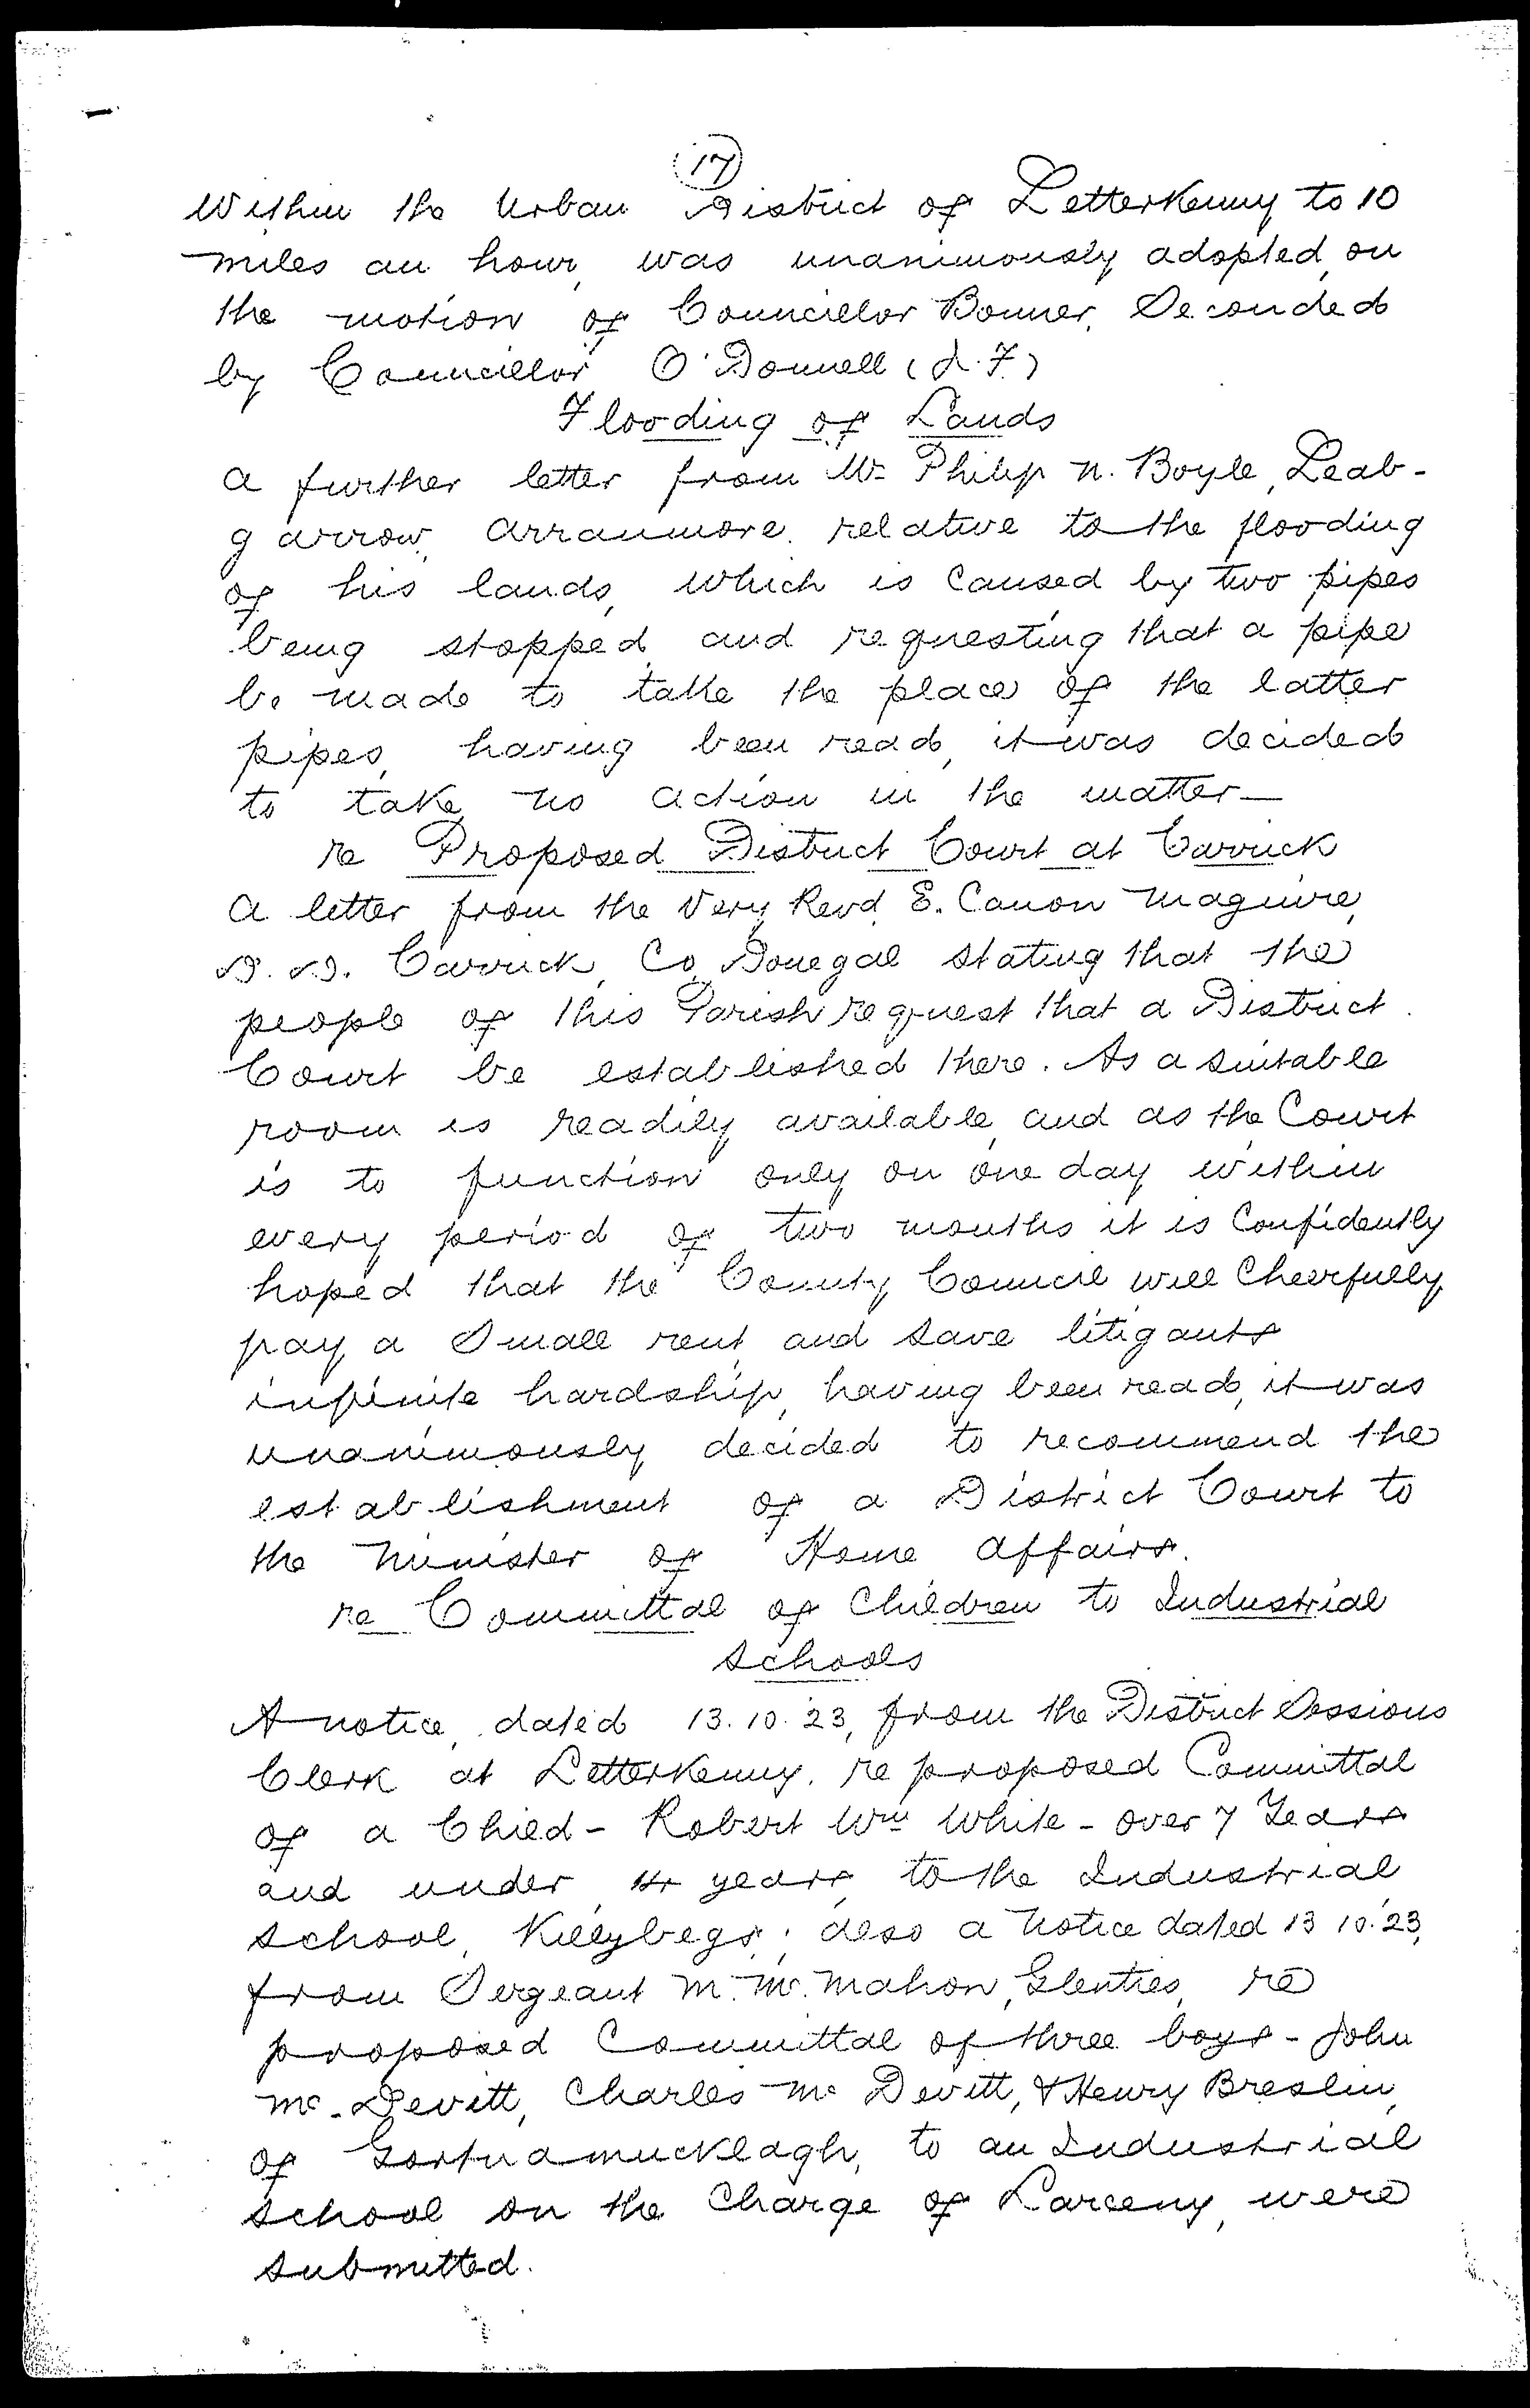 17
Within the Urban District of Letterkenny to 10
miles an hour, was unanimously adopted, on
the motion of Councillor Bonner, Seconded
by Councillor O'Donnell (J. F.)
Flooding of Lands
A further letter from Mr Philip N. Boyle, Leab-
garrow, Arranmore, relative to the flooding
of his lands, which is caused by two pipes
being stopped, and requesting that a pipe
be made to take the place of the latter
pipes, having been read, it was decided
to take no action in the matter—
re Proposed District Court at Carrick
A letter from the Very Revd. E. Canon Maguire,
D. D. Carrick, Co. Donegal stating that the
people of this Parish request that a District
Court be established there. As a suitable
room is readily available, and as the Court
is to function only on one day within
every period of two months it is confidently
hoped that the County Council will cheerfully
pay a small rent, and save litigants
infinite hardship, having been read, it was
unanimously decided to recommend the
establishment of a District Court to
the Minister of Home Affairs.
re Committal of Children to Industrial
Schools
A notice, dated 13.10.'23, from the District Sessions
Clerk at Letterkenny, re proposed Committal
of a Child - Robert Wm White - over 7 Years
and under 14 years, to the Industrial
School, Killybegs; also a notice dated 13 10.'23,
from Sergeant M. Mc. Mahon, Glenties, re
proposed Committal of three boys - John
Mc. Devitt, Charles Mc Devitt, & Henry Breslin,
of Gortnamucklagh, to an Industrial
School on the Charge of Larceny, were
submitted.